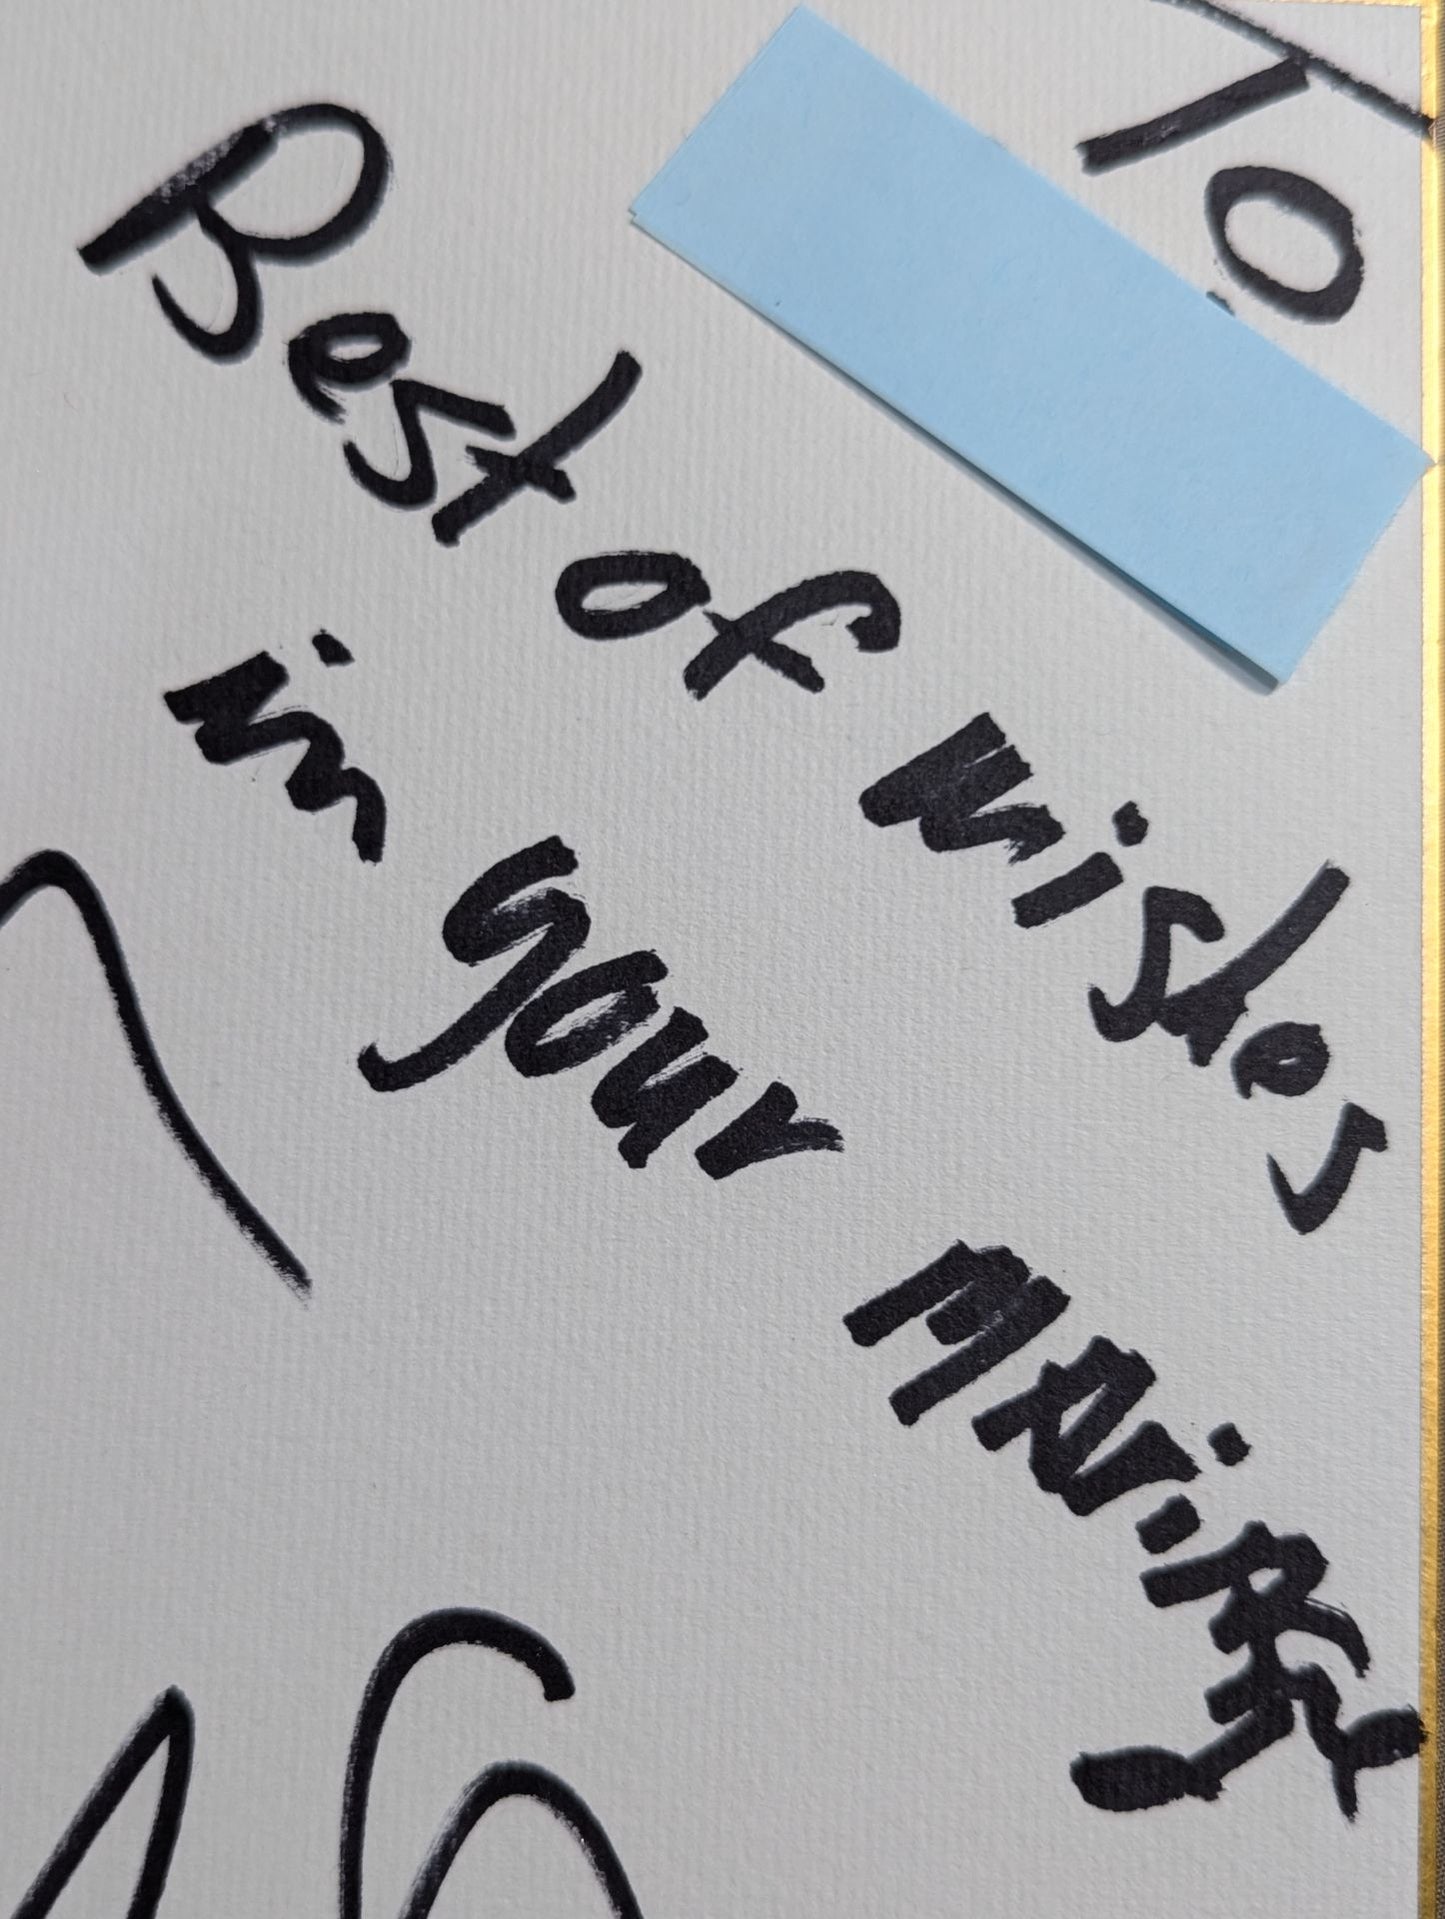 To
Best of wishes
in your